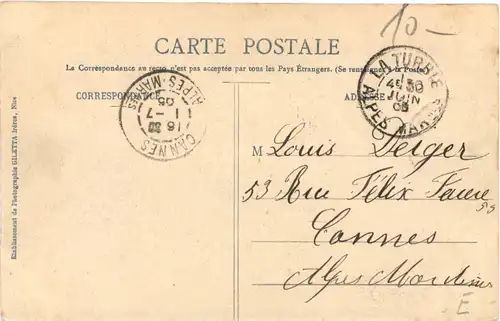 10-
CARTE POSTALE
La Correspondance au recto n'est pas acceptée par tous les Pays Étrangers. (Se renseigner à la Poste)
CORRESPONDANCE
ADRESSE
LA TURBIE
JUIN
05
ALPES MAR
CANNES
16 30
1-7
05
ALPES-MARMES
M Louis Deiger
53 Rue Félix Faure
53
Cannes
Alpes Maritimes
E
Etablissement de Photographie GILETTA frères, Nice